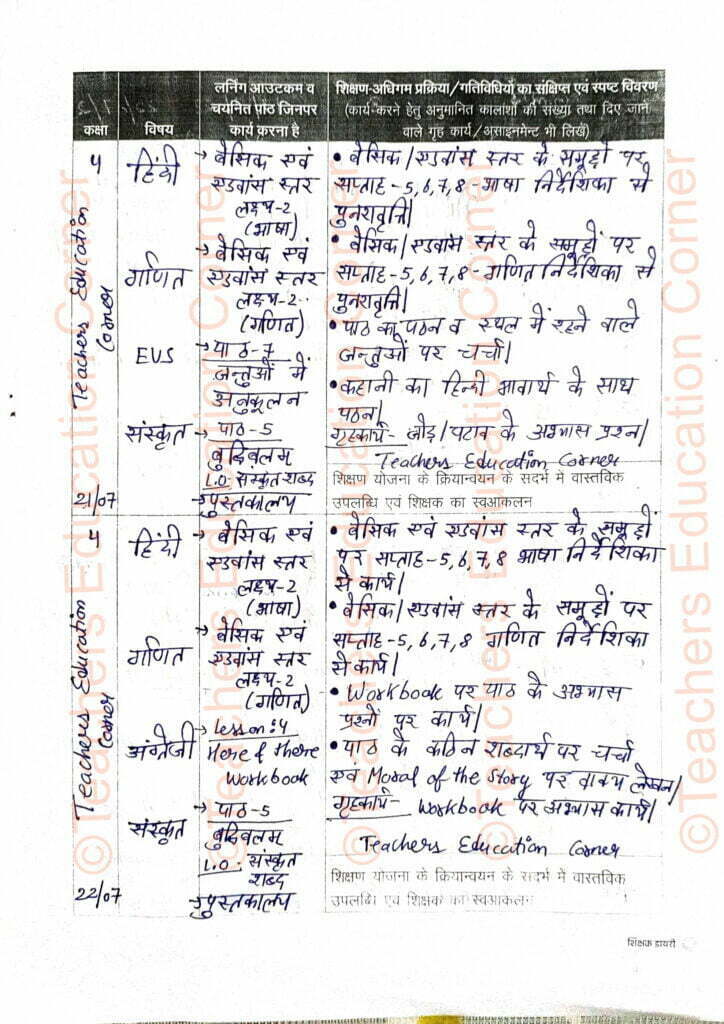 कक्षा
विषय
लर्निंग आउटकम व
चयनित पाठ जिनपर
कार्य करना है
शिक्षण-अधिगम प्रक्रिया/गतिविधियों का संक्षिप्त एवं स्पष्ट विवरण
(कार्य करने हेतु अनुमानित कालांशों की संख्या तथा दिए जाने
वाले गृह कार्य/असाइनमेंट भी लिखें)
4
हिंदी
→ बेसिक एवं
एडवांस स्तर
लक्ष्य-2
(भाषा)
• बेसिक/एडवांस स्तर के समूहों पर
सप्ताह-5,6,7,8-भाषा निर्देशिका से
पुनरावृत्ति।
गणित
→ बेसिक एवं
एडवांस स्तर
लक्ष्य-2
(गणित)
• बेसिक/एडवांस स्तर के समूहों पर
सप्ताह-5,6,7,8-गणित निर्देशिका से
पुनरावृत्ति।
EVS
→ पाठ-7
जन्तुओं में
अनुकूलन
• पाठ का पठन व स्थल में रहने वाले
जन्तुओं पर चर्चा।
संस्कृत
→ पाठ-5
बुद्धिबलम्
L.O- संस्कृत शब्द
→ पुस्तकालय
• कहानी का हिन्दी भावार्थ के साथ
पठन।
गृहकार्य- जोड़/घटाव के अभ्यास प्रश्न।
Teachers Education Corner
शिक्षण योजना के क्रियान्वयन के सदर्भ में वास्तविक
उपलब्धि एवं शिक्षक का स्वआकलन
21/07
Teachers Education
Corner
4
हिंदी
→ बेसिक एवं
एडवांस स्तर
लक्ष्य-2
(भाषा)
• बेसिक एवं एडवांस स्तर के समूहों
पर सप्ताह-5,6,7,8 भाषा निर्देशिका
से कार्य।
गणित
→ बेसिक एवं
एडवांस स्तर
लक्ष्य-2
(गणित)
• बेसिक/एडवांस स्तर के समूहों पर
सप्ताह-5,6,7,8 गणित निर्देशिका
से कार्य।
अंग्रेजी
→ Lesson:4
Here & there
Workbook
• Workbook पर पाठ के अभ्यास
प्रश्नों पर कार्य।
संस्कृत
→ पाठ-5
बुद्धिबलम्
L.O- संस्कृत
शब्द
→ पुस्तकालय
• पाठ के कठिन शब्दार्थ पर चर्चा
एवं Moral of the Story पर वाक्य लेखन।
गृहकार्य- Workbook पर अभ्यास कार्य।
Teachers Education Corner
शिक्षण योजना के क्रियान्वयन के सदर्भ में वास्तविक
उपलब्धि एवं शिक्षक का स्वआकलन
22/07
Teachers Education
Corner
शिक्षक डायरी
©Teachers Education Corner
©Teachers Education Corner
©Teachers Education Corner
©Teachers Education Corner
©Teachers Education Corner